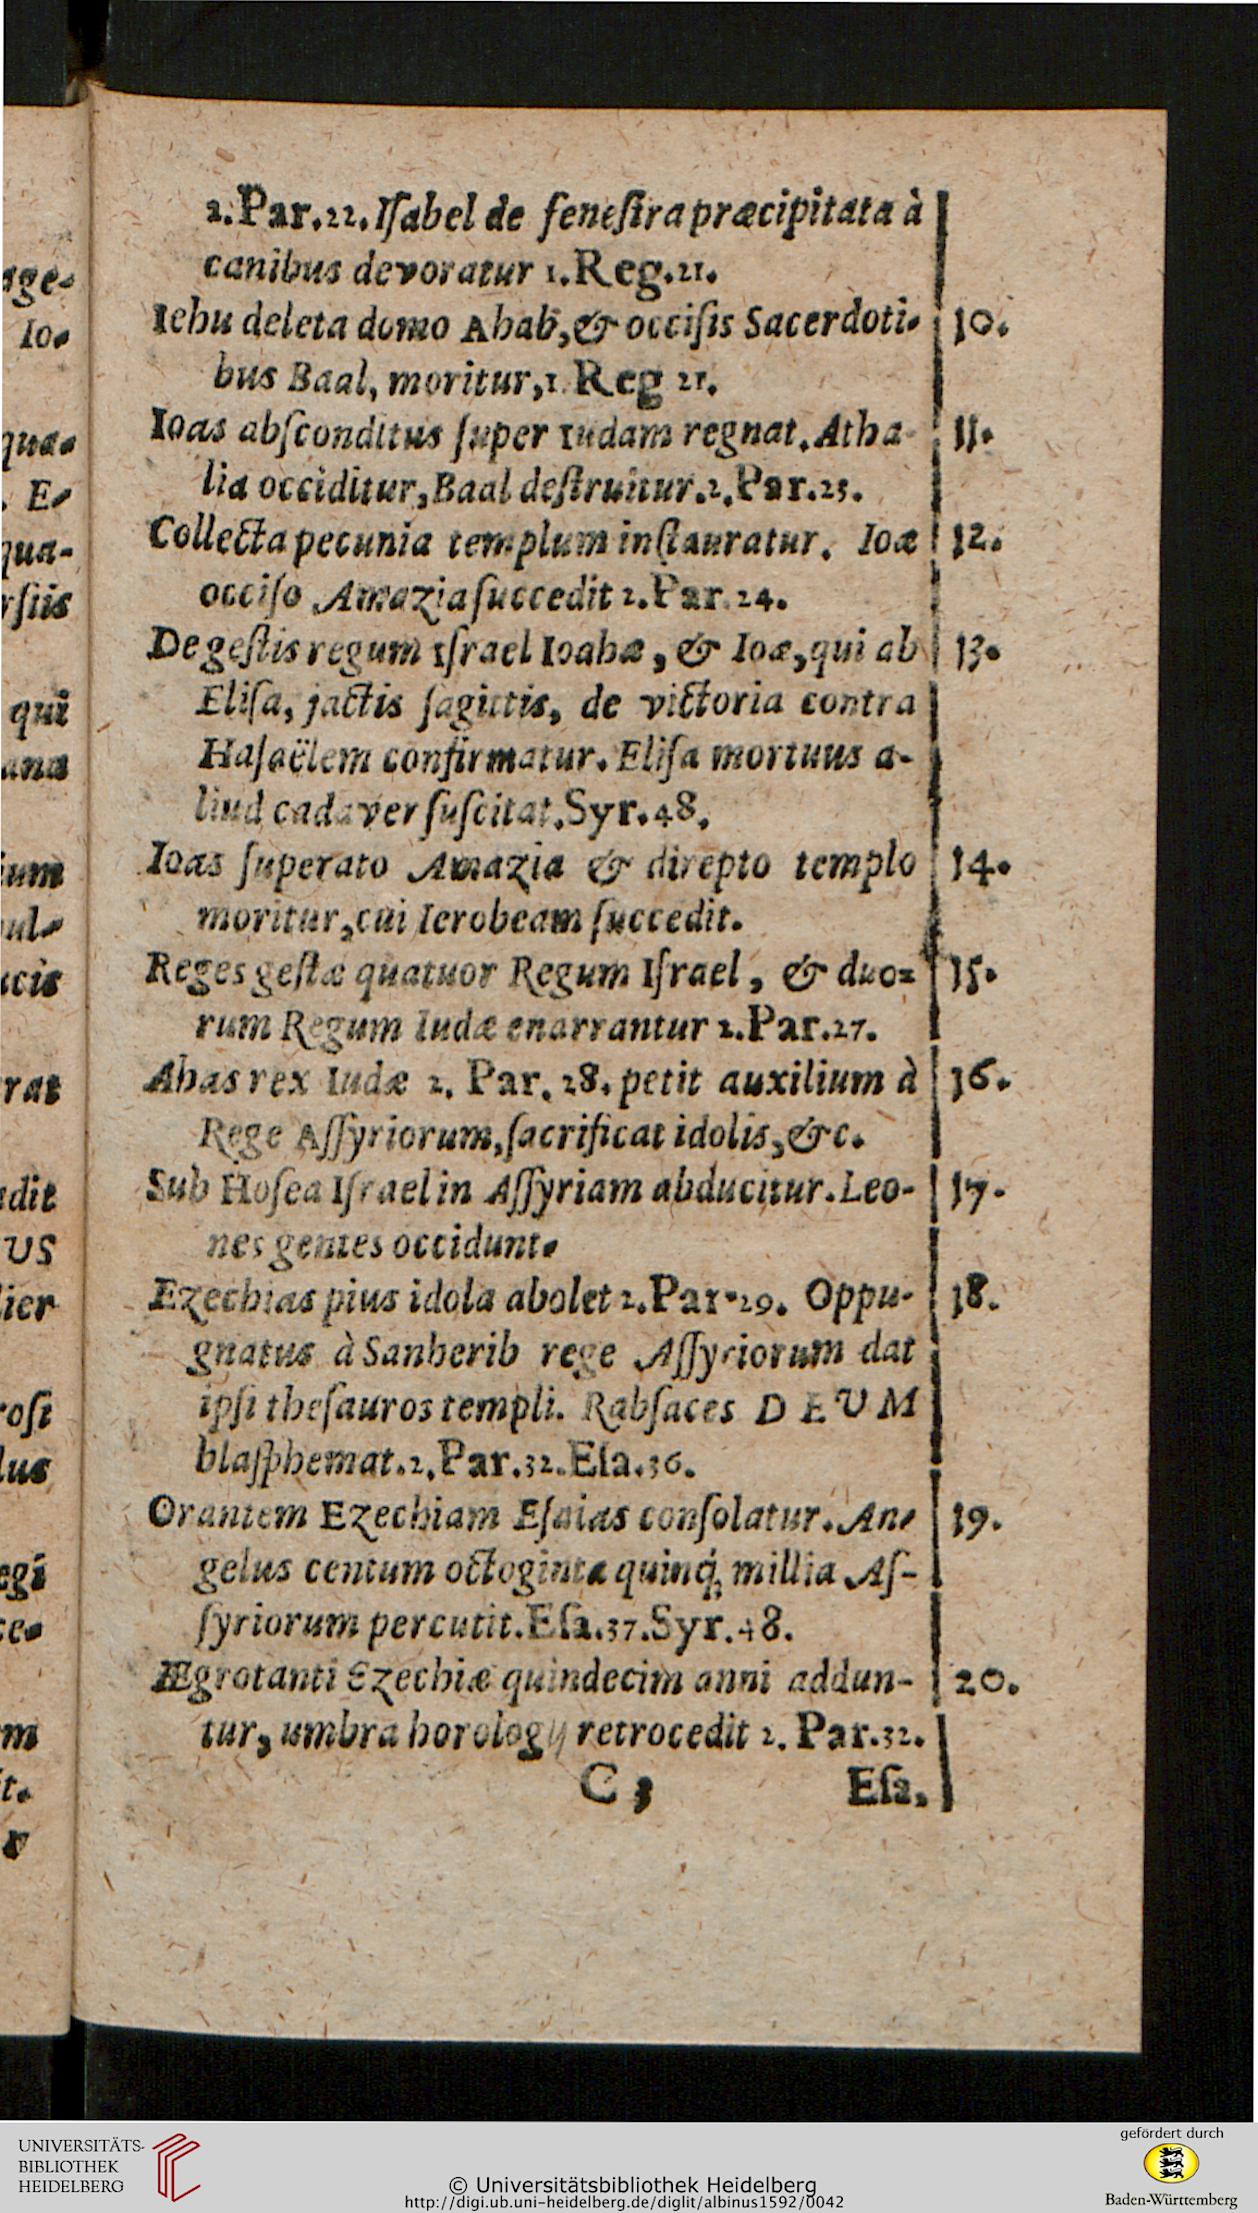 2.Par.22.Iſabel de feneſtra præcipitata à
canibus devoratur 1.Reg.21.
Iehu deleta domo Ahab,& occiſis Sacerdoti- 10.
bus Baal, moritur,1.Reg 21.
Ioas abſconditus ſuper Iudam regnat.Atha- 11.
lia occiditur,Baal deſtruitur.2.Par.23.
Collecta pecunia templum inſtauratur. Ioæ 12.
occiſo Amazia ſuccedit 2.Par.24.
De geſtis regum Iſrael Ioahæ, & Ioæ,qui ab 13.
Eliſa, jactis ſagittis, de victoria contra
Haſaëlem confirmatur. Eliſa mortuus a-
liud cadaver ſuſcitat.Syr.48.
Ioas ſuperato Amazia & direpto templo 14.
moritur,cui Ierobeam ſuccedit.
Reges geſtæ quatuor Regum Iſrael, & duo- 15.
rum Regum Iudæ enarrantur 2.Par.27.
Ahas rex Iudæ 2. Par. 28. petit auxilium à 16.
Rege Aſſyriorum,ſacrificat idolis,&c.
Sub Hoſea Iſrael in Aſſyriam abducitur.Leo- 17.
nes gentes occidunt.
Ezechias pius idola abolet 2.Par.29. Oppu- 18.
gnatus à Sanherib rege Aſſyriorum dat
ipſi theſauros templi. Rabſaces DEUM
blaſphemat.2.Par.32.Eſa.36.
Orantem Ezechiam Eſaias conſolatur. An- 19.
gelus centum octoginta quinq; millia Aſ-
ſyriorum percutit.Eſa.37.Syr.48.
Ægrotanti Ezechiæ quindecim anni addun- 20.
tur, umbra horologij retrocedit 2. Par.32.
C 3 Eſa.
age-
Io-
qua-
. E-
qua-
rſiis
qui
ana
ium
ul-
ucis
rat
dit
US
lier
roſt
lus
egi
ce-
m
t.
r
UNIVERSITÄTS-
BIBLIOTHEK
HEIDELBERG
© Universitätsbibliothek Heidelberg
http://digi.ub.uni-heidelberg.de/diglit/albinus1592/0042
gefördert durch
Baden-Württemberg